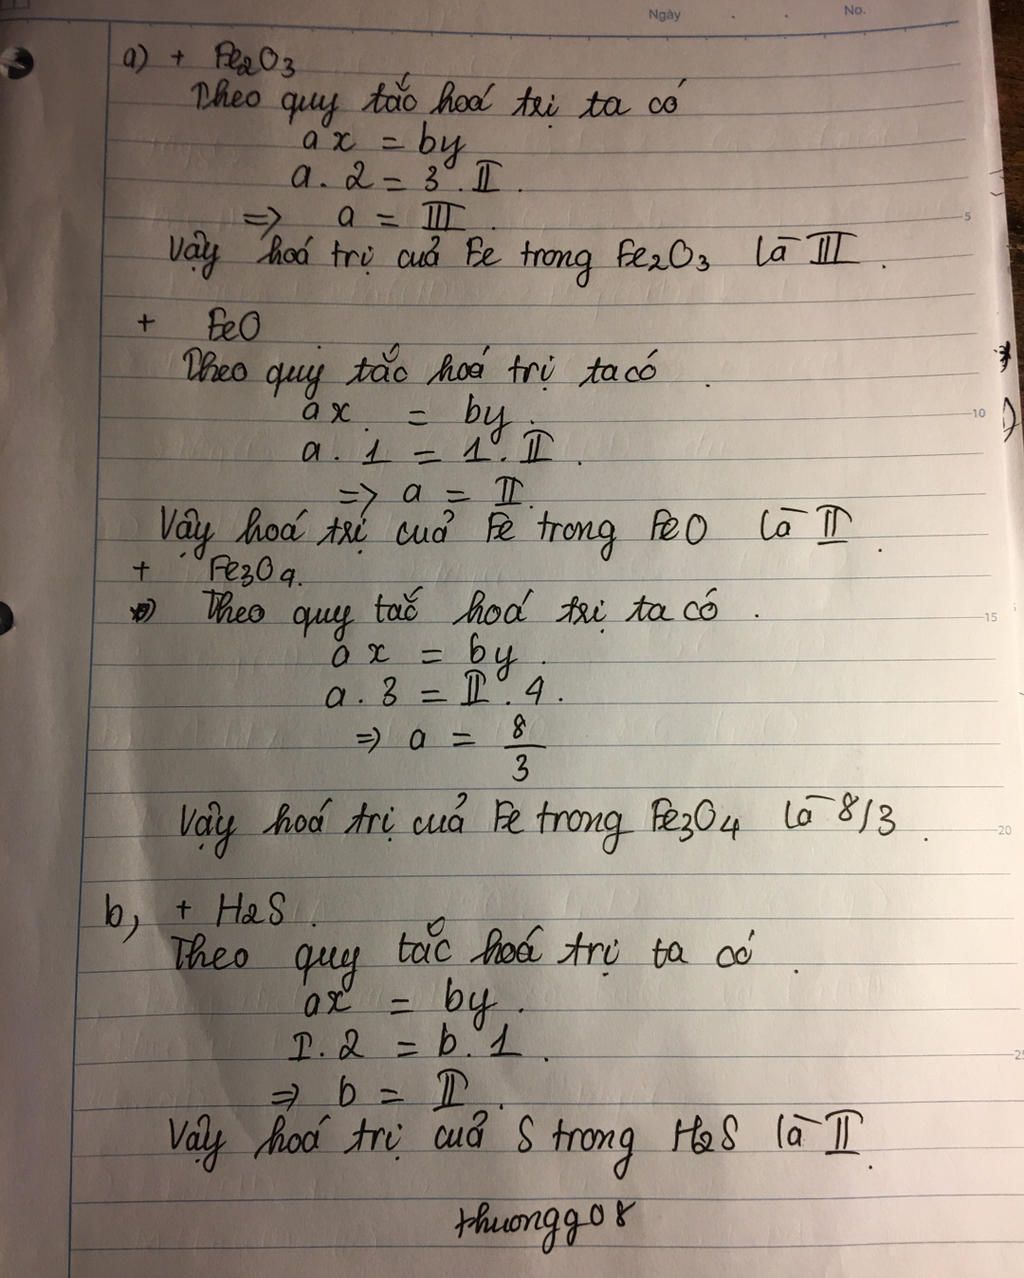 Ngày . . No.
a) + Fe2O3
Theo quy tắc hoá trị ta có
ax = by
a. 2 = 3 . II .
=> a = III .
5
Vậy hoá trị cuả Fe trong Fe2O3 là III .
+ FeO
Theo quy tắc hoá trị ta có .
ax = by .
10
a. 1 = 1. II .
=> a = II .
Vậy hoá trị cuả Fe trong FeO là II .
+ Fe3O4.
Theo quy tắc hoá trị ta có .
15
ax = by .
a. 3 = II . 4 .
=> a = 8/3
Vậy hoá trị cuả Fe trong Fe3O4 là 8/3 .
20
b, + H2S .
Theo quy tắc hoá trị ta có .
ax = by .
I. 2 = b. 1 .
25
=> b = II .
Vậy hoá trị cuả S trong H2S là II .
thuongg08